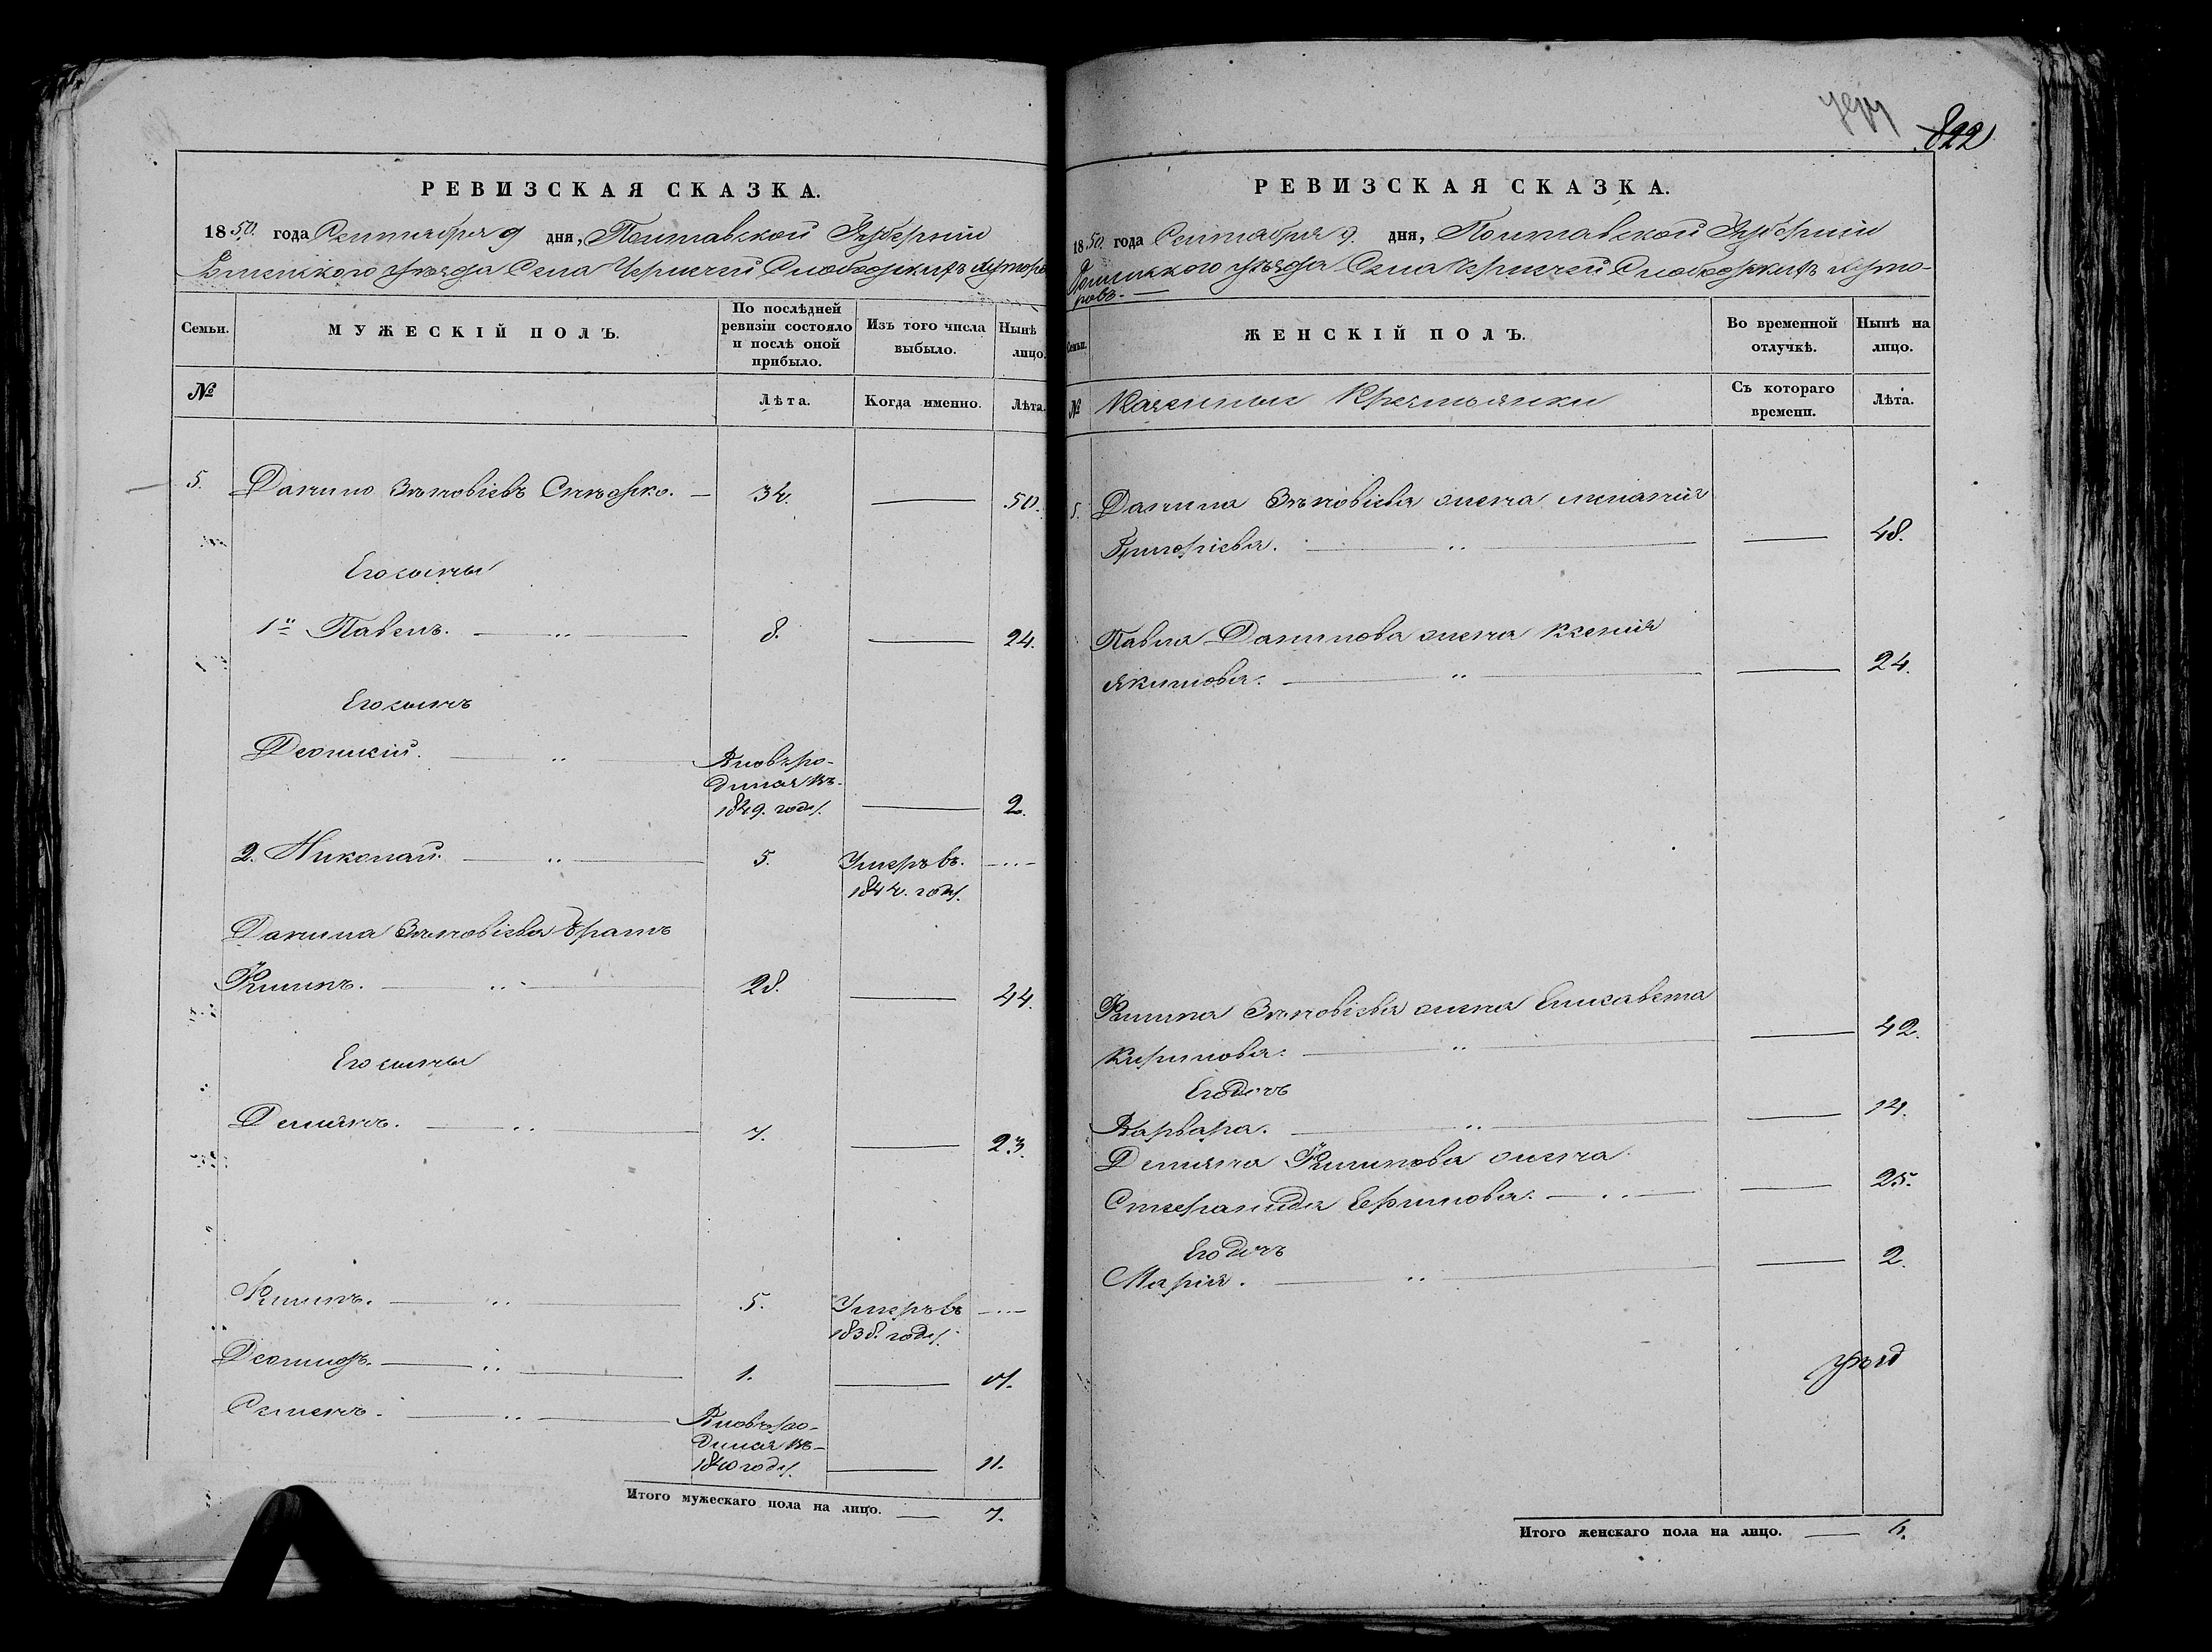 822
РЕВИЗСКАЯ СКАЗКА.
1850. года Сентября 9 дня, Полтавской Губерніи
Роменского уѣзда Села Чернечей Слободки хуторо
Семьи.
МУЖЕСКІЙ ПОЛЪ.
По послѣдней ревизіи состояло и послѣ оной прибыло.
Изъ того числа выбыло.
Нынѣ лицо.
№
Лѣта.
Когда именно.
Лѣта.
5. Данило Зѣновіевъ 34. — 50.
Его сыны
1й Павелъ. — „ — 8. — 24.
Его сынъ
— „ — Вновь ро-
дился въ
1849. году. — 2.
2. Николай. — „ — 5. Умеръ въ. — „ —
1844. году.
Данила Зѣновіева братъ
Филипъ. — „ — 28. — 44.
Его сыны
Демянъ. — „ — 7. — 23.
Филипъ. — „ — 5. Умеръ въ — „ —
1838. году.
— „ — 1. — 17.
Семенъ. — „ — Вновь ро-
дился въ
1840 году. — 11.
Итого мужескаго пола на лицо. — 7.
РЕВИЗСКАЯ СКАЗКА.
1850. года Сентября 9. дня, Полтавской Губерніи
Роменского уѣзда Села Чернечей Слободки хуто-
ровъ. —
Семьи.
ЖЕНСКІЙ ПОЛЪ.
Во временной отлучкѣ.
Нынѣ на лицо.
№
Казенныи Крестьянки
Съ котораго времени.
Лѣта.
5. Данила Зѣновіева жена Меланія
Григоріева. — „ — — 48.
Павла Данилова жена Ксенія
Якимова. — „ — — 24.
Филипа Зѣновіева жена Елисавета
Кирилова. — „ — — 42.
Его дочь
Варвара. — „ — — 14.
Демяна Филипова жена
Стефанида Ефимова. — „ — — 25.
Его дочь
Марія. — „ — — 2.
Итого женскаго пола на лицо. — 6.